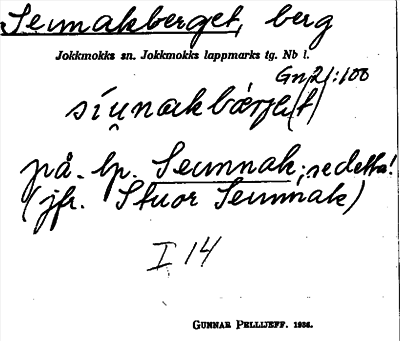 Seunakberget, berg
Jokkmokks sn. Jokkmokks lappmarks tg. Nb l.
Gn,21:100
síu̯nakbærjə(t)
på lp. Seunnak; se detta!
(jfr. Stuor Seunnak)
I 14
GUNNAR PELLIJEFF. 1936.